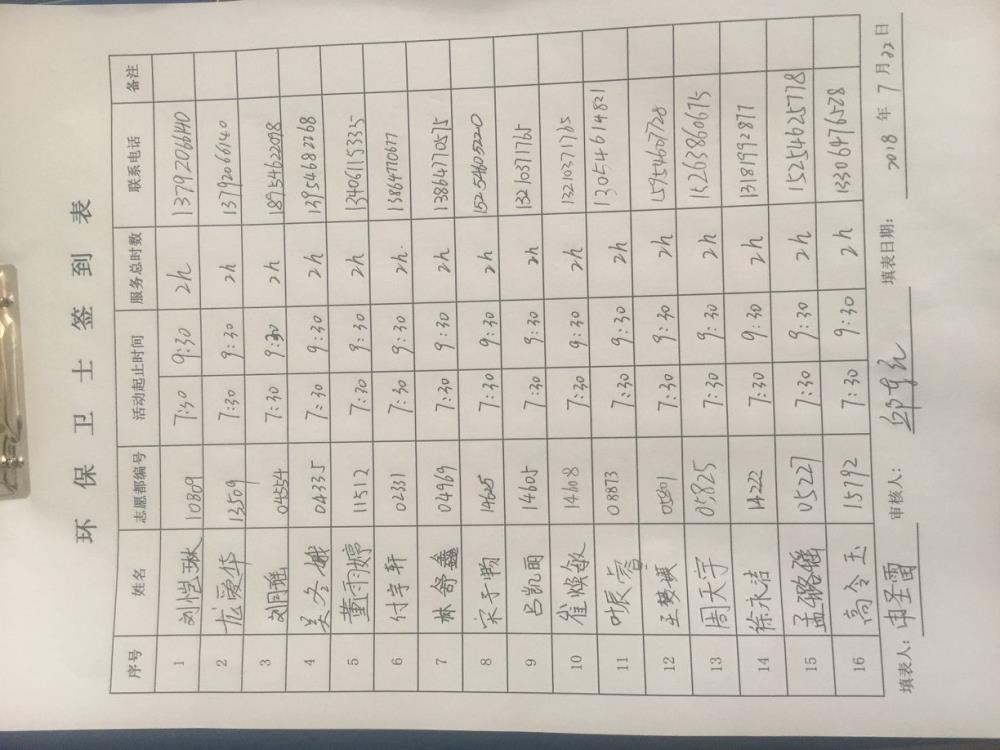 环保卫士签到表
序号 姓名 志愿都编号 活动起止时间 服务总时数 联系电话 备注
1 刘恺琳 10809 7:30 9:30 2h 13792066140
2 尤爱华 13509 7:30 9:30 2h 13792066140
3 刘月瑶 04554 7:30 9:30 2h 18954622098
4 吴冬娥 04335 7:30 9:30 2h 13954682268
5 董雨婷 11512 7:30 9:30 2h 13406115333
6 付宇轩 02331 7:30 9:30 2h. 13864770677
7 林舒鑫 04969 7:30 9:30 2h 13864770575
8 宋子鹏 14625 7:30 9:30 2h 15254605220
9 吕凯丽 14605 7:30 9:30 2h 13210371765
10 崔焕敏 14608 7:30 9:30 2h 13210371765
11 叶辰睿 08873 7:30 9:30 2h 13054614821
12 王梦瑛 05801 7:30 9:30 2h 15954607728
13 周天宇 05825 7:30 9:30 2h 15263860675
14 徐木洁 14222 7:30 9:30 2h 13181992877
15 孟璐瑶 05227 7:30 9:30 2h 15254625778
16 高令玉 15792 7:30 9:30 2h 13306476528
填表人: 申圣雷 审核人: 填表日期: 2018 年 7 月 22 日